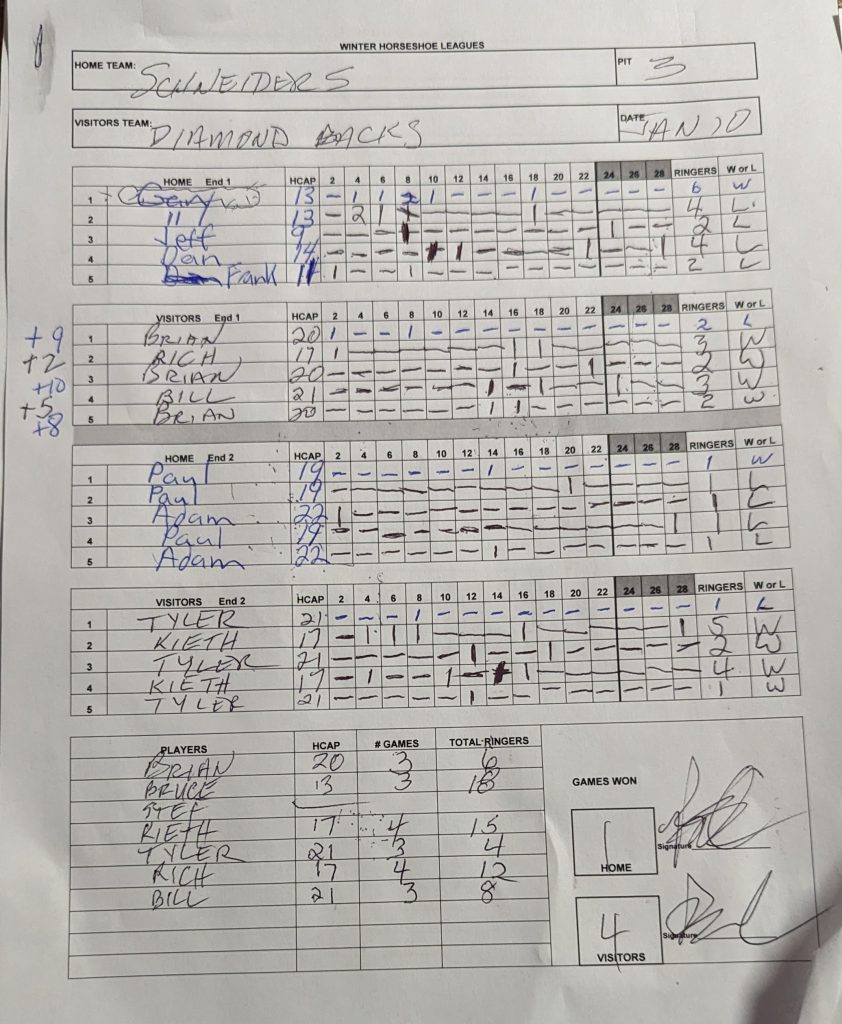 WINTER HORSESHOE LEAGUES
HOME TEAM: SCHNEIDERS PIT 3
VISITORS TEAM: DIAMOND BACKS DATE JAN 10
HOME End 1 HCAP 2 4 6 8 10 12 14 16 18 20 22 24 26 28 RINGERS W or L
1 13 - 1 1 2 1 - - - 1 - - - - - 6 W
2 11 13 - 2 1 1 - - - - 1 - - - - - 4 L
3 Jeff 9 - - - 1 - - - - - - - 1 - - 2 L
4 Dan 14 - - - - 1 1 - - - - 1 - - 1 4 L
5 Fank 11 1 - - 1 - - - - - - - - - - 2 L
VISITORS End 1 HCAP 2 4 6 8 10 12 14 16 18 20 22 24 26 28 RINGERS W or L
+9 1 BRIAN 20 1 - - 1 - - - - - - - - - - 2 L
+2 2 RICH 17 1 - - - - - - 1 1 - - - - - 3 W
+10 3 BRIAN 20 - - - - - - - 1 - - 1 - - - 2 W
+5 4 BILL 21 - - - - - - 1 - 1 - - 1 - - 3 W
+8 5 BRIAN 20 - - - - - - 1 1 - - - - - - 2 W
HOME End 2 HCAP 2 4 6 8 10 12 14 16 18 20 22 24 26 28 RINGERS W or L
1 Paul 19 - - - - - - 1 - - - - - - - 1 W
2 Paul 19 - - - - - - - - - 1 - - - - 1 L
3 Adam 22 1 - - - - - - - - - - - - - 1 L
4 Paul 19 - - - - - - - - - - - - - 1 1 L
5 Adam 22 - - - - - - 1 - - - - - - - 1 L
VISITORS End 2 HCAP 2 4 6 8 10 12 14 16 18 20 22 24 26 28 RINGERS W or L
1 TYLER 21 - - - 1 - - - - - - - - - - 1 L
2 KIETH 17 - 1 1 1 - - - 1 - - - - - 1 5 W
3 TYLER 21 - - - - - 1 - - 1 - - - - - 2 W
4 KIETH 17 - 1 - - 1 - 1 1 - - - - - - 4 W
5 TYLER 21 - - - - - 1 - - - - - - - - 1 W
PLAYERS HCAP # GAMES TOTAL RINGERS
BRIAN 20 3 6
BRUCE 13 3 18
STEF
KIETH 17 4 15
TYLER 21 3 4
RICH 17 4 12
BILL 21 3 8
GAMES WON
1
HOME
Signature
4
VISITORS
Signature